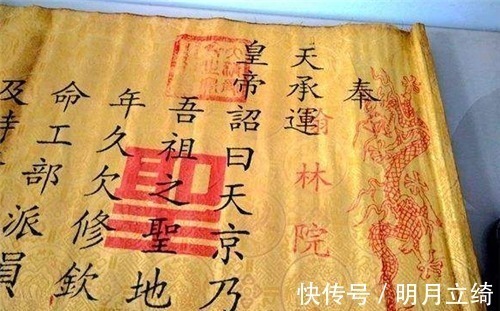 奉
天承運
翰林院
皇帝詔曰天京乃
吾祖之聖地
年久欠修欽
命工部派員
及
快传号/明月立绮